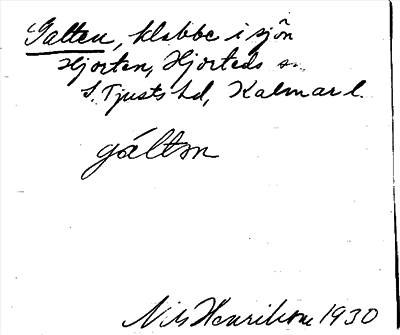 Galten, klabbe i sjön
Hjorten, Hjorteds s.
S. Tjusts hd, Kalmar l.
gáltən
Nils Henriksson 1930